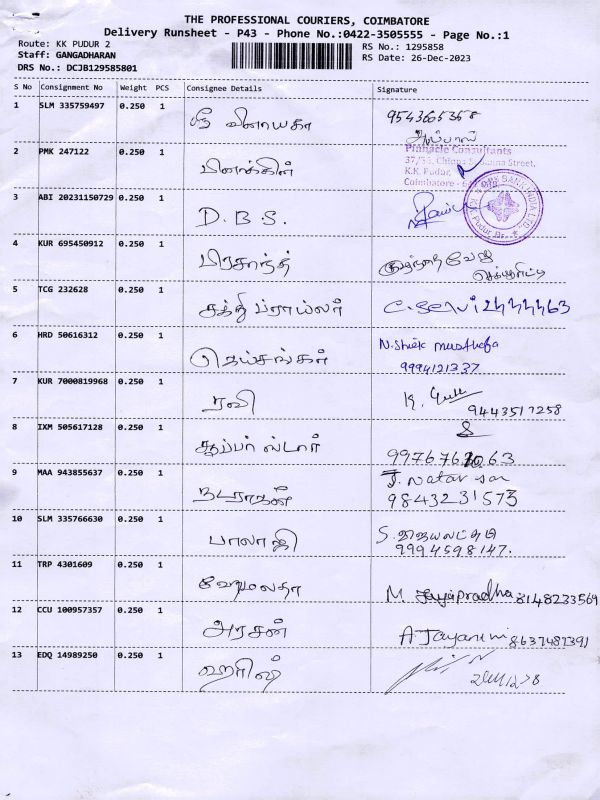 THE PROFESSIONAL COURIERS, COIMBATORE
Delivery Runsheet - P43 - Phone No.:0422-3505555 - Page No.:1
Route: KK PUDUR 2
RS No.: 1295858
Staff: GANGADHARAN
RS Date: 26-Dec-2023
DRS No.: DCJB129585801
S No Consignment No Weight PCS Consignee Details Signature
1 SLM 335759497 0.250 1 ஸ்ரீ விநாயகா
2 PMK 247122 0.250 1
Pinnacle Consultants
K.K. Pudur,
Coimbatore
3 ABI 20231150729 0.250 1 D.B.S.
DBS BANK INDIA LTD.,
K.K. Pudur Br.
4 KUR 695450912 0.250 1 பிரசாந்த்
5 TCG 232628 0.250 1 சக்தி ப்ராய்லர்
6 HRD 50616312 0.250 1 N.Shiek musthafa
9994121337
7 KUR 7000819968 0.250 1 ரவி K.
9443517258
8 IXM 505617128 0.250 1 சூப்பர் ஸ்டார்
9 MAA 943855637 0.250 1 நடராஜன் J. Natarasan
9843231573
10 SLM 335766630 0.250 1 பாலாஜி S. ஜெயலட்சுமி
9994598147.
11 TRP 4301609 0.250 1 ஹேமலதா M Jayapradha 8148233569
12 CCU 100957357 0.250 1 அரசன் 8637487391
13 EDQ 14989250 0.250 1 ஹரிஷ்